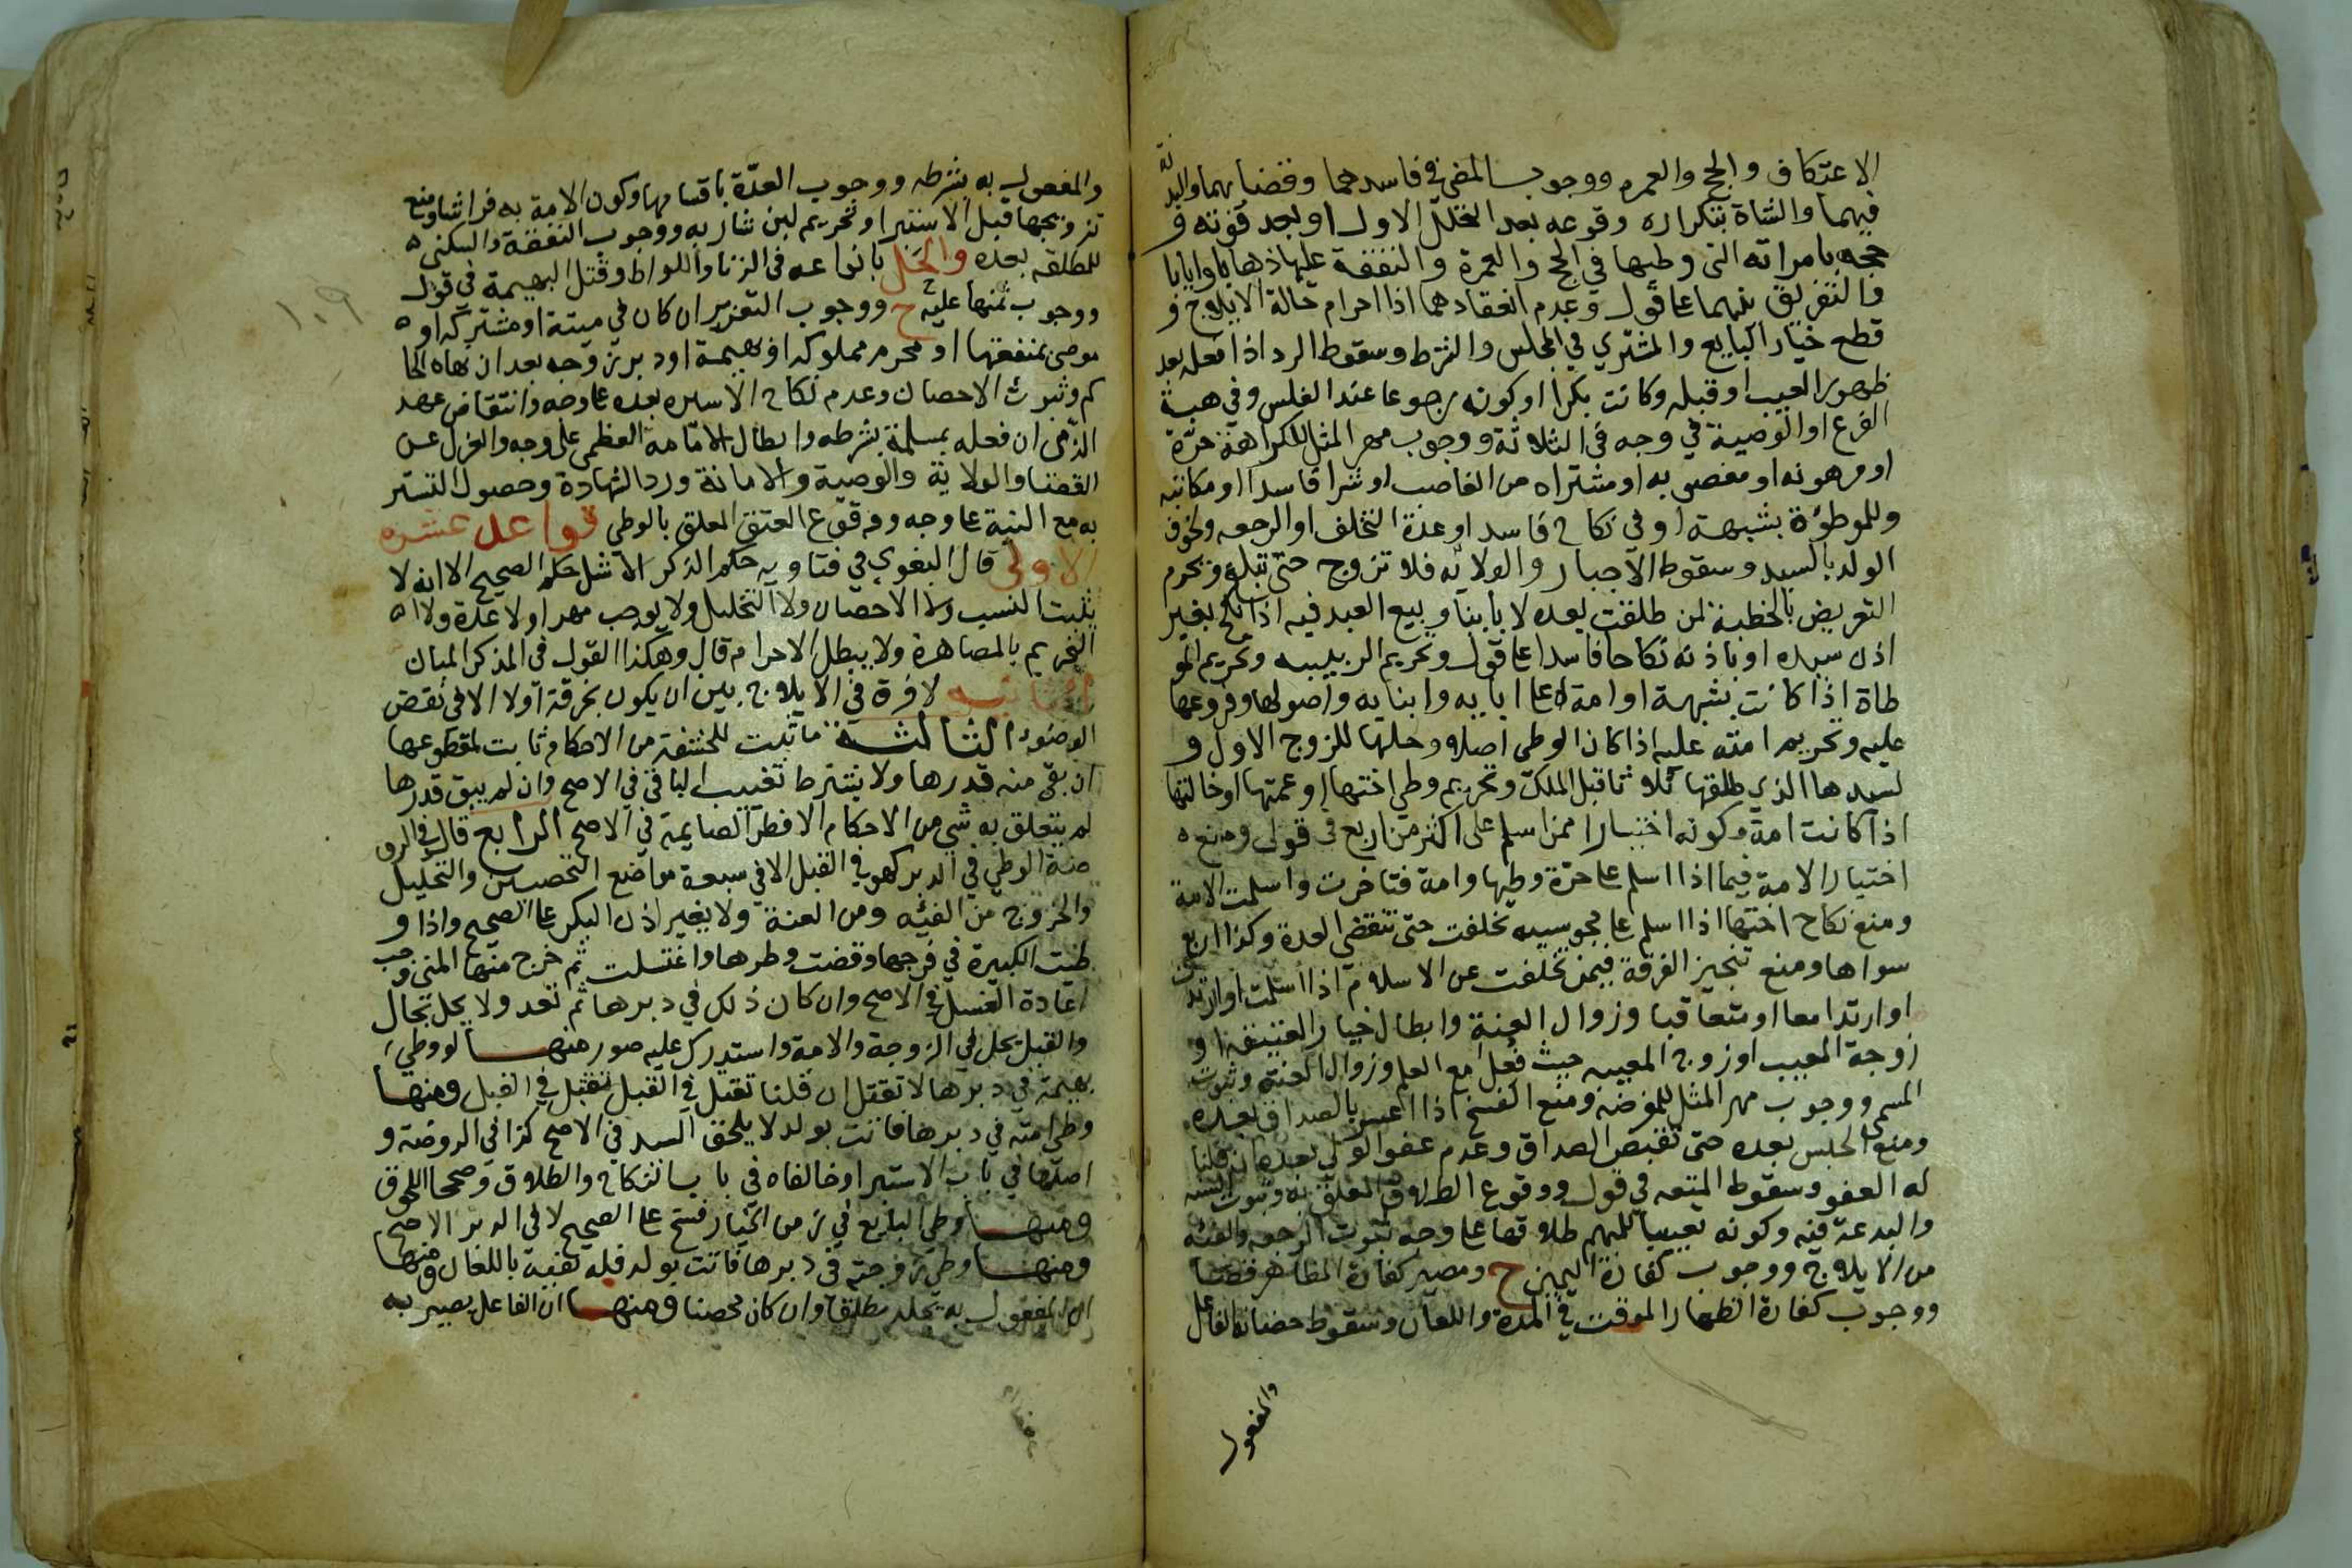 الاعتكاف والحج والعمره ووجوب المضي في فاسدهما وقضايهما والبدنة
فيهما والشاة بتكراره وقوعه بعد التحلل الاول او بعد فوته و
حجه بامراته التي وطيها في الحج والعمرة والنفقة عليها ذهابا وايابا
والتفريق بينهما على قول وعدم انعقادهما اذا احرام حالة الايلاج و
قطع خيار البايع والمشتري في المجلس والشرط وسقوط الرد اذا فعله بعد
ظهور العيب او قبله وكانت بكرا او كونه رجوعا عند الفلس وفي هبة
الفرع او الوصية في وجه في الثلاثة ووجوب مهر المثل للكراهة حرة
او مرهونه او مغصوبه او مشتراه من الغاصب او شرا فاسدا او مكاتبه
وللموطؤة بشبهة او في نكاح فاسد او عدة التخلف او الرجعه ولحوق
الولد بالسيد وسقوط الاجبار والولاية فلا تزوج حتى تبلغ وتحرم
التعريض بالخطبة لمن طلقت بعده لا باينا وبيع العبد فيه اذا نكح بغير
اذن سيده او باذنه نكاحا فاسدا على قول وتحريم الربيبه وتحريم المو
طاة اذا كانت بشبهة او امة له على ابايه وابنايه واصولها وفروعها
عليه وتحريم امته عليه اذا كان الوطي اصله وحلها للزوج الاول و
لسيدها الذي طلقها ثلاثا قبل الملك وتحريم وطي اختها او عمتها او خالتها
اذا كانت امة وكونه اختيارا ممن اسلم على اكثر من اربع في قول ومنع
اختيار الامة فيما اذا اسلم على حرة وطيها وامة فتاخرت واسلمت الامة
ومنع نكاح اختها اذا اسلم على مجوسيه تخلفت حتى تنقضي العدة وكذا اربع
سواها ومنع تنجيز الفرقة فيمن تخلفت عن الاسلام اذا اسلمت او ارتدت
او ارتدا معا او متعاقبا وزوال العنة وابطال خيار العتيقة او
زوجة المعيب او زوج المعيبه حيث فعل مع العلم وزوال العنته وثبوت
المسمى ووجوب مهر المثل للمفوضة ومنع الفسخ اذا اعسر بالصداق بعده
ومنع الحبس بعده حتى تقبض الصداق وعدم عفو الولي بعده ان قلنا
له العفو وسقوط المتعه في قول ووقوع الطلاق المعلق به وثبوت السنة
والبدعة فيه وكونه تعيينا للمبهم طلاقها على وجه ثبوت الرجعه والفيئه
من الايلاج ووجوب كفارة اليمين ح ومصير كفارة المظاهر قضا
ووجوب كفارة الظهار الموقت في المدة واللعان وسقوط حضانة الفاعل
والمفعول
والمفعول به بشرطه ووجوب العدة باقسامها وكون الامة به فراشا ومنع
تزويجها قبل الاستبرا وتحريم لبن شاربه ووجوب النفقة والسكنى
للمطلقه بعده والحل بانواعه في الزنا واللواط وقتل البهيمة في قول
ووجوب ثمنها عليه ح ووجوب التعزير ان كان في ميتة او مشتركه او
موصى بمنفعتها او محرم مملوكه او بهيمة او دبر زوجه بعد ان نهاه الحا
كم وثبوت الاحصان وعدم نكاح الاسيره بعده على وجه وانتقاض عهد
الذمي ان فعله بمسلمة بشرطه وابطال الامامة العظمى على وجه والعزل عن
القضا والولاية والوصية والامانة ورد الشهادة وحصول التستر
به مع النية على وجه ووقوع العتق المعلق بالوطي قواعد عشره
الاولى قال البغوي في فتاويه حكم الذكر الاشل حكم الصحيح الا انه لا
يثبت النسب ولا الاحصان ولا التحليل ولا يوجب مهرا ولا عدة ولا
التحريم بالمصاهرة ولا يبطل الاحرام قال وهكذا القول في المذكر المبان
الثانيه لا فرق في الايلاج بين ان يكون بخرقة او لا الا في نقض
الوضوء الثالثة ما تثبت للحشفة من الاحكام ثابت لمقطوعها
ان بقي منه قدرها ولا يشترط تغييب الباقي في الاصح وان لم يبق قدرها
لم يتعلق به شي من الاحكام الا فطر الصايمة في الاصح الرابع قال في الرو
ضة الوطي في الدبر كهو في القبل الا في سبعة مواضع التحصين والتحليل
والخروج من الفئيه ومن العنة ولا يغير اذن البكر على الصحيح واذا و
طئت الكبيرة في فرجها وقضت وطرها واغتسلت ثم خرج منها المني وجب
اعادة الغسل في الاصح وان كان ذلك في دبرها ثم تعد ولا يحل بحال
والقبل يحل في الزوجة والامة واستدرك عليه صور منها لو وطي
بهيمة في دبرها لا تقتل ان قلنا تقتل في القبل تقتل في القبل ومنها
وطي امته في دبرها فاتت بولد لا يلحق السيد في الاصح كذا في الروضة و
اصلها في باب الاستبرا وخالفاه في باب النكاح والطلاق وصححا اللحوق
ومنها وطي البايع في زمن الخيار فسخ على الصحيح لا في الدبر الاصح
ومنها وطي زوجته في دبرها فاتت بولد فله نفيه باللعان ومنها
ان المفعول به يجلد مطلقا وان كان محصنا ومنها ان الفاعل يصير به
١٠٩